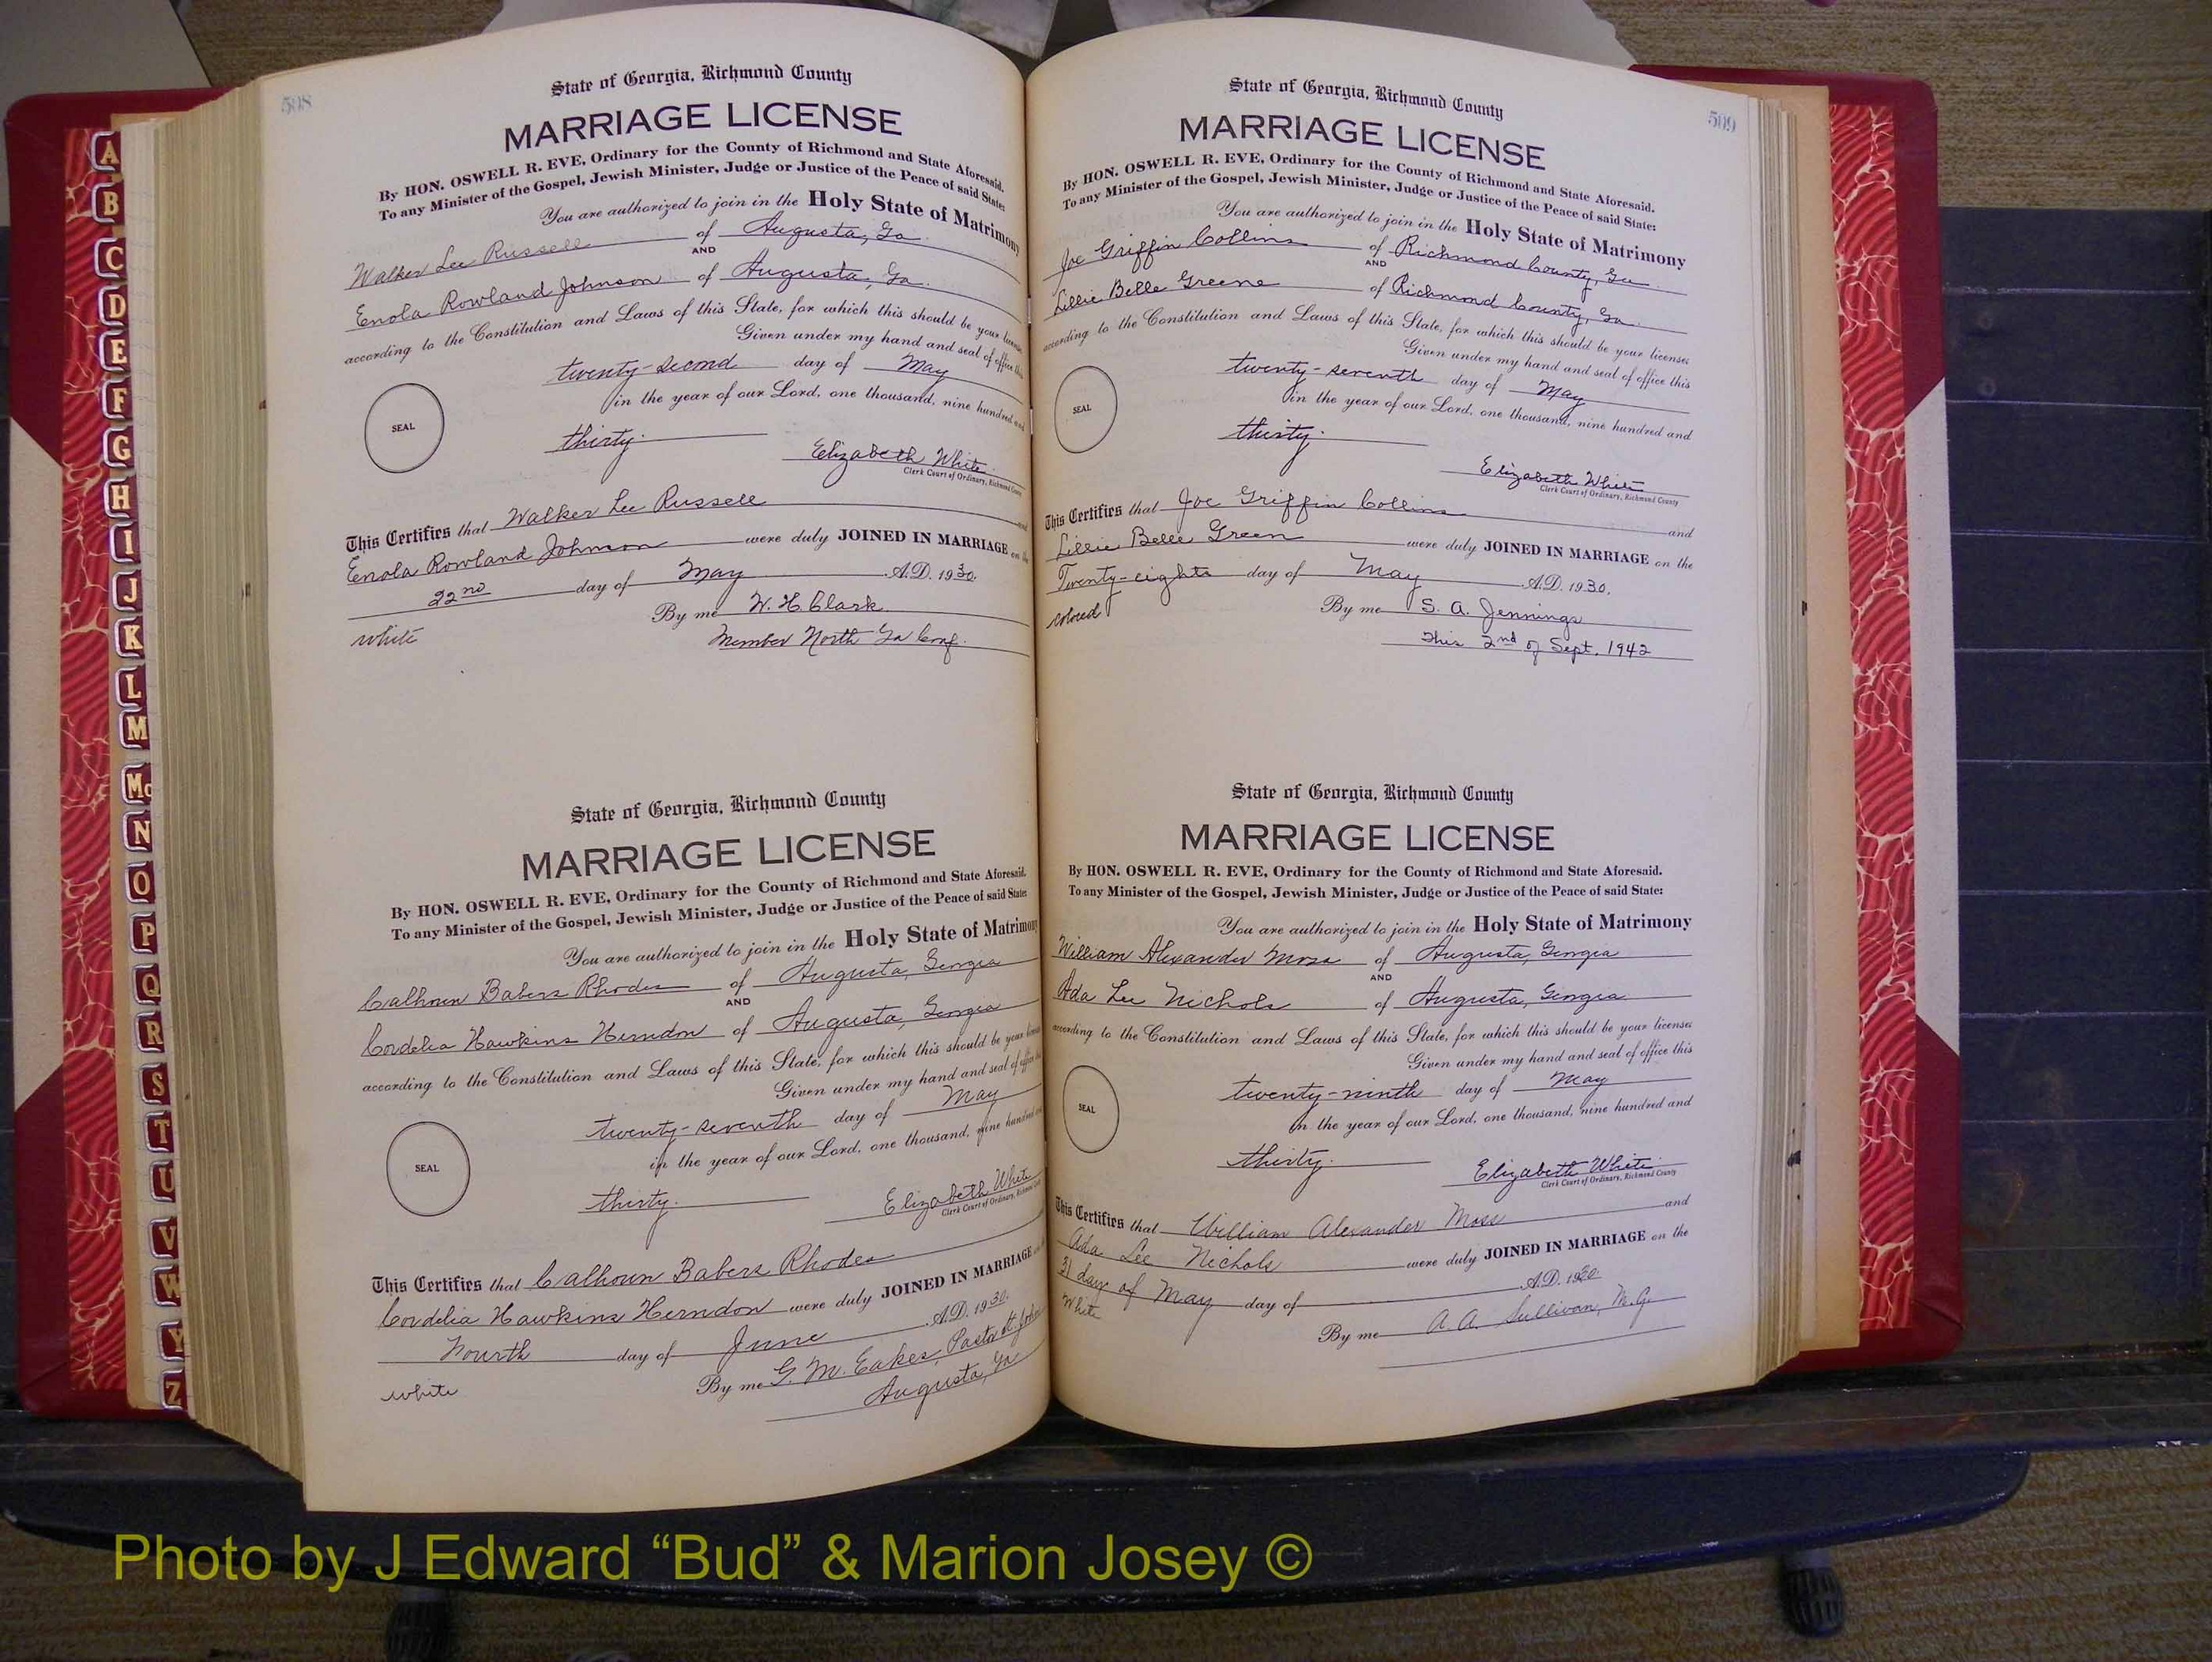 508
State of Georgia, Richmond County
MARRIAGE LICENSE
By HON. OSWELL R. EVE, Ordinary for the County of Richmond and State Aforesaid.
To any Minister of the Gospel, Jewish Minister, Judge or Justice of the Peace of said State:
You are authorized to join in the Holy State of Matrimony
Walker Lee Russell of Augusta, Ga.
AND
Enola Rowland Johnson of Augusta, Ga.
according to the Constitution and Laws of this State, for which this should be your license
Given under my hand and seal of office this
twenty-second day of May
in the year of our Lord, one thousand, nine hundred and
SEAL
thirty.
Elizabeth White
Clerk Court of Ordinary, Richmond County
This Certifies that Walker Lee Russell and
Enola Rowland Johnson were duly JOINED IN MARRIAGE on the
22nd day of May A.D. 1930.
By me W. H. Clark
white Member North Ga Conf.
State of Georgia, Richmond County
MARRIAGE LICENSE
By HON. OSWELL R. EVE, Ordinary for the County of Richmond and State Aforesaid.
To any Minister of the Gospel, Jewish Minister, Judge or Justice of the Peace of said State:
You are authorized to join in the Holy State of Matrimony
Calhoun Babers Rhodes of Augusta, Georgia
AND
Cordelia Hawkins Herndon of Augusta, Georgia
according to the Constitution and Laws of this State, for which this should be your license
Given under my hand and seal of office this
twenty-seventh day of May
in the year of our Lord, one thousand, nine hundred and
SEAL
thirty.
Elizabeth White
Clerk Court of Ordinary, Richmond County
This Certifies that Calhoun Babers Rhodes
Cordelia Hawkins Herndon were duly JOINED IN MARRIAGE
Fourth day of June A.D. 1930.
By me G. M. Eakes, Pastor St John
white Augusta, Ga
509
State of Georgia, Richmond County
MARRIAGE LICENSE
By HON. OSWELL R. EVE, Ordinary for the County of Richmond and State Aforesaid.
To any Minister of the Gospel, Jewish Minister, Judge or Justice of the Peace of said State:
You are authorized to join in the Holy State of Matrimony
Joe Griffin Collins of Richmond County, Ga
AND
Lillie Belle Greene of Richmond County, Ga.
according to the Constitution and Laws of this State, for which this should be your licenses
Given under my hand and seal of office this
twenty-seventh day of May
in the year of our Lord, one thousand, nine hundred and
SEAL
thirty.
Elizabeth White
Clerk Court of Ordinary, Richmond County
This Certifies that Joe Griffin Collins and
Lillie Belle Green were duly JOINED IN MARRIAGE on the
Twenty-eighth day of May A.D. 1930.
colored By me S. A. Jennings
This 2nd of Sept. 1942
State of Georgia, Richmond County
MARRIAGE LICENSE
By HON. OSWELL R. EVE, Ordinary for the County of Richmond and State Aforesaid.
To any Minister of the Gospel, Jewish Minister, Judge or Justice of the Peace of said State:
You are authorized to join in the Holy State of Matrimony
William Alexander Moss of Augusta, Georgia
AND
Ada Lee Nichols of Augusta, Georgia
according to the Constitution and Laws of this State, for which this should be your licenses
Given under my hand and seal of office this
twenty-ninth day of May
in the year of our Lord, one thousand, nine hundred and
SEAL
thirty.
Elizabeth White
Clerk Court of Ordinary, Richmond County
This Certifies that William Alexander Moss and
Ada Lee Nichols were duly JOINED IN MARRIAGE on the
31 day of May day of A.D. 1930
White
By me A. A. Sullivan, M.G.
A
B
C
D
E
F
G
H
I
J
K
L
M
Mc
N
O
P
Q
R
S
T
U
V
W
Y
Z
Photo by J Edward “Bud” & Marion Josey ©